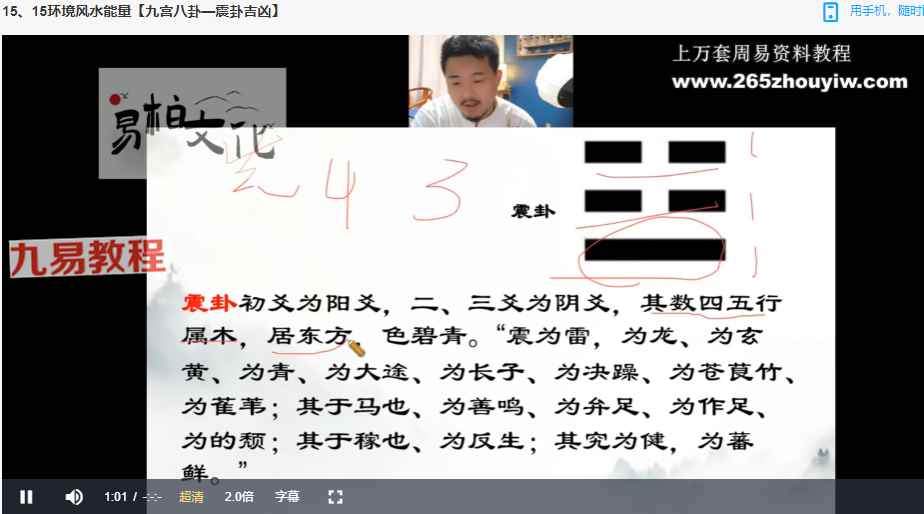 15、15环境风水能量【九宫八卦—震卦吉凶】
用手机，随时
上万套周易资料教程
www.265zhouyiw.com
易柏文化
4 3
震卦
九易教程
震卦初爻为阳爻，二、三爻为阴爻，其数四五行
属木，居东方，色碧青。“震为雷，为龙、为玄
黄、为青、为大途、为长子、为决躁、为苍茛竹、
为萑苇；其于马也、为善鸣、为弁足、为作足、
为的颡；其于稼也、为反生；其究为健，为蕃
鲜。”
1:01 / -:-:- 超清 2.0倍 字幕